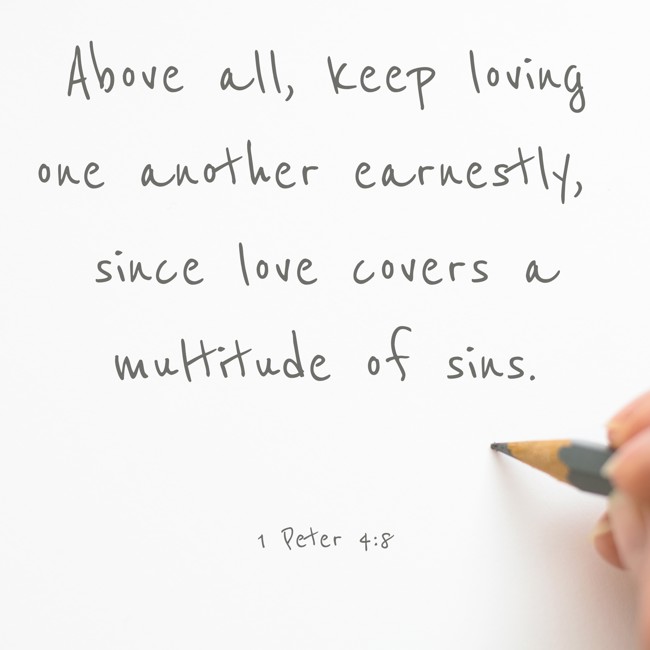 Above all, keep loving
one another earnestly,
since love covers a
multitude of sins.
1 Peter 4:8